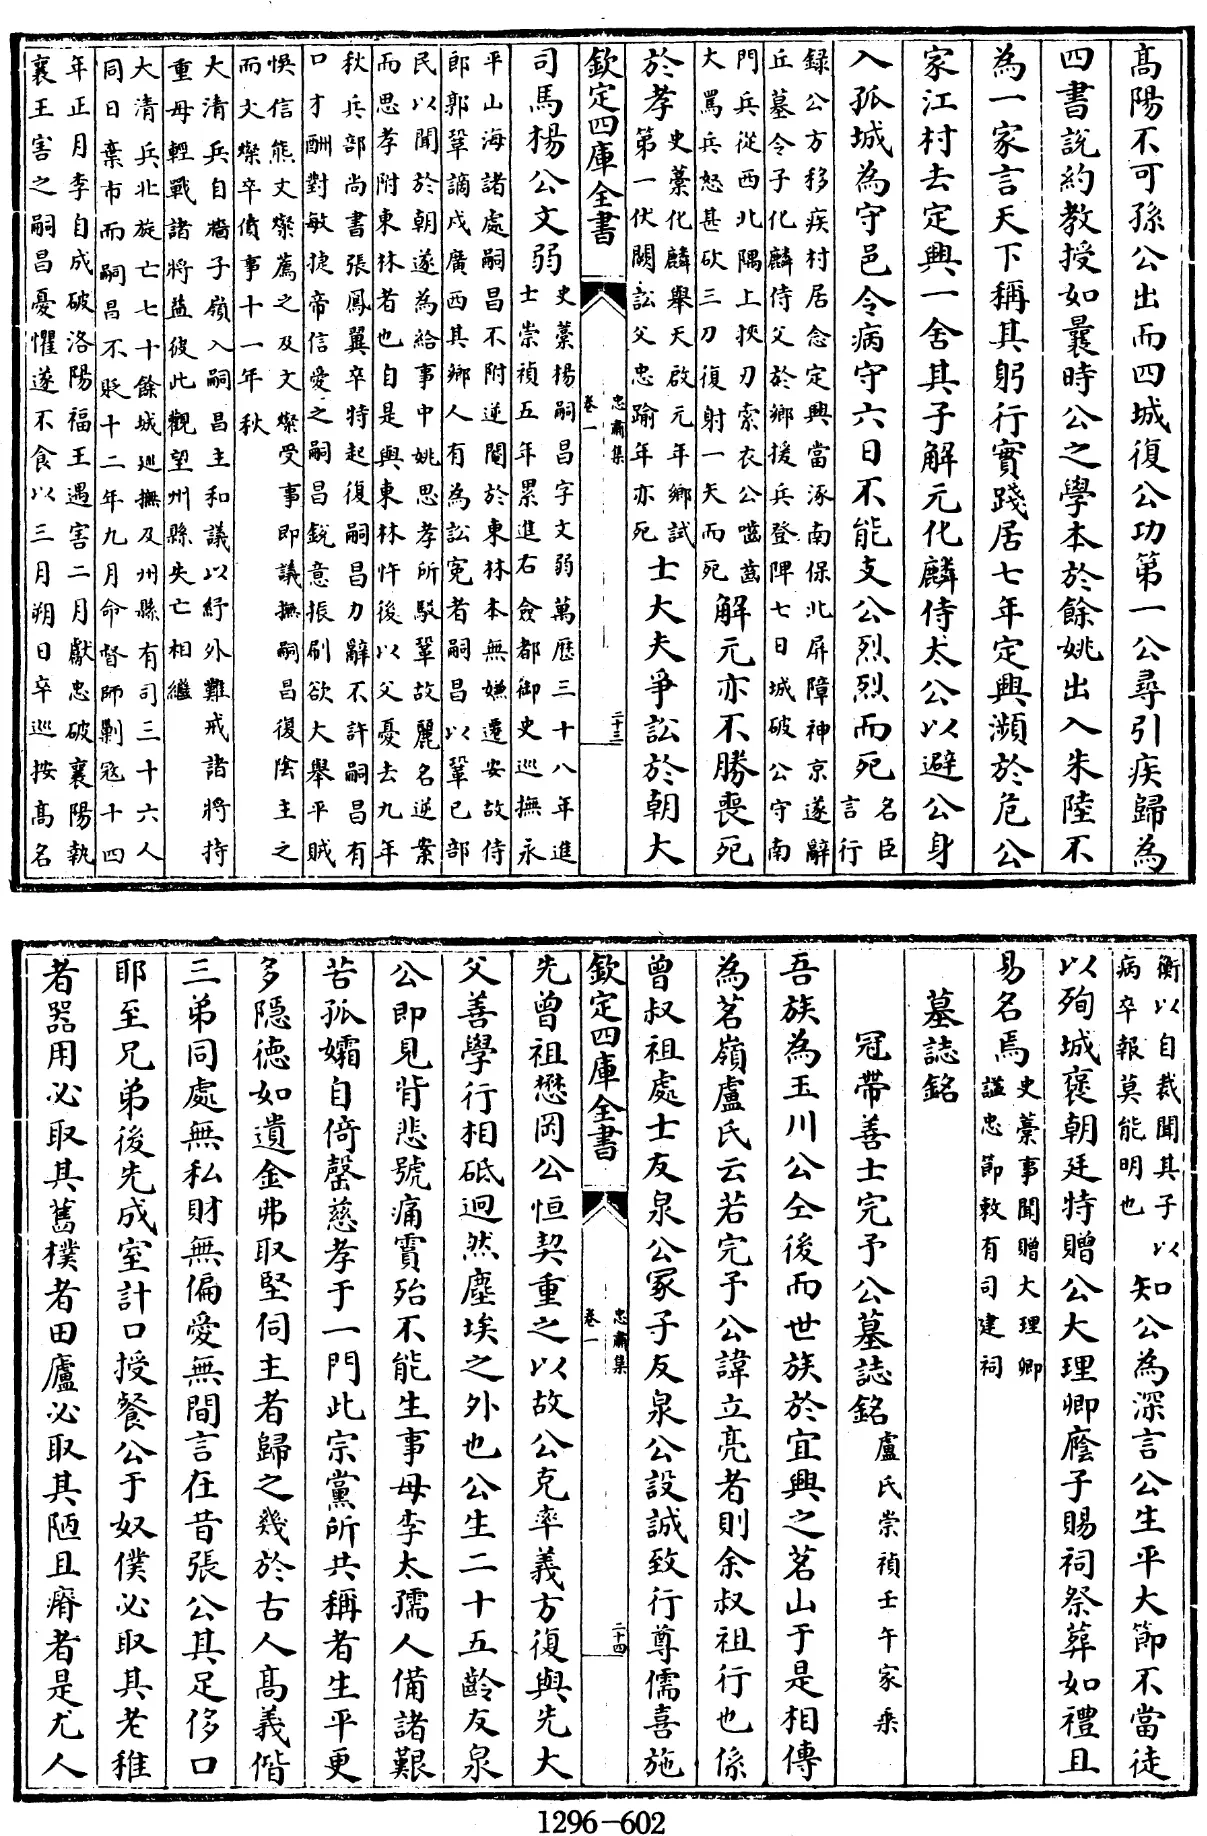 髙陽不可孫公出而四城復公功第一公尋引疾歸為
四書說約教授如曩時公之學本於餘姚出入朱陸不
為一家言天下稱其躬行實踐居七年定興瀕於危公
家江村去定興一舍其子解元化麟侍太公以避公身
入孤城為守邑令病守六日不能支公烈烈而死名臣
言行
録公方移疾村居念定興當涿南保北屏障神京遂辭
丘墓令子化麟侍父於鄉援兵登陴七日城破公守南
門兵從西北隅上挾刃索衣公嚙齒
大罵兵怒甚砍三刀復射一矢而死解元亦不勝喪死
於孝史藁化麟舉天啟元年鄉試
第一伏闕訟父忠踰年亦死士大夫爭訟於朝大
欽定四庫全書
忠肅集
卷一
二十三
司馬楊公文弱史藁楊嗣昌字文弱萬厯三十八年進
士崇禎五年累進右僉都御史巡撫永
平山海諸處嗣昌不附逆閹於東林本無嫌遷安故侍
郎郭鞏謫戍廣西其鄉人有為訟寃者嗣昌以鞏已部
民以聞於朝遂為給事中姚思孝所駁鞏故麗名逆案
而思孝附東林者也自是與東林忤後以父憂去九年
秋兵部尚書張鳳翼卒特起復嗣昌力辭不許嗣昌有
口才酬對敏捷帝信愛之嗣昌鋭意振刷欲大舉平賊
悞信熊文燦薦之及文燦受事即議撫嗣昌復陰主之
而文燦卒僨事十一年秋
大清兵自牆子嶺入嗣昌主和議以紓外難戒諸將持
重毋輕戰諸將益彼此觀望州縣失亡相繼
大清兵北旋亡七十餘城廵撫及州縣有司三十六人
同日棄市而嗣昌不貶十二年九月命督師剿寇十四
年正月李自成破洛陽福王遇害二月獻忠破襄陽執
襄王害之嗣昌憂懼遂不食以三月朔日卒巡按髙名
衡以自裁聞其子以
病卒報莫能明也知公為深言公生平大節不當徒
以殉城褒朝廷特贈公大理卿廕子賜祠祭葬如禮且
易名焉史藁事聞贈大理卿
諡忠節敕有司建祠
墓誌銘
冠帶善士完予公墓誌銘盧氏崇禎壬午家乘
吾族為玉川公仝後而世族於宜興之茗山于是相傳
為茗嶺盧氏云若完予公諱立亮者則余叔祖行也係
曾叔祖處士友泉公冢子友泉公設誠致行尊儒喜施
欽定四庫全書
忠肅集
卷一
二十四
先曾祖懋岡公恒契重之以故公克率義方復與先大
父善學行相砥迥然塵埃之外也公生二十五齡友泉
公即見背悲號痛霣殆不能生事母李太孺人備諸艱
苦孤孀自倚罄慈孝于一門此宗黨所共稱者生平更
多隱德如遺金弗取堅伺主者歸之幾於古人髙義偕
三弟同處無私財無偏愛無間言在昔張公其足侈口
耶至兄弟後先成室計口授餐公于奴僕必取其老稚
者器用必取其舊樸者田廬必取其陋且瘠者是尤人
1296-602